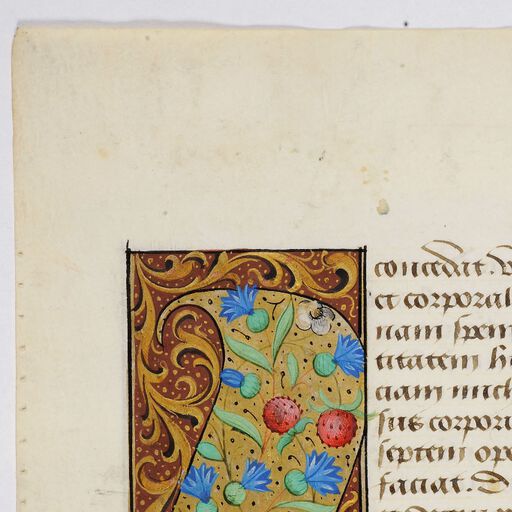 concedat. V
et corporal
nam spem
titatem h
ciam mich
sus corpora
septem ope
faciat. D